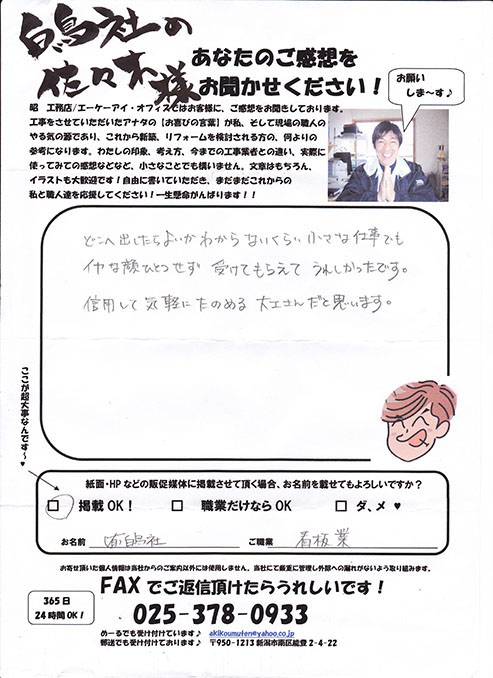 白鳥社の
佐々木様
あなたのご感想を
お聞かせください！
お願い
しま〜す♪
昭 工務店/エーケーアイ・オフィスではお客様に、ご感想をお聞きしております。
工事をさせていただいたアナタの【お喜びの言葉】が私、そして現場の職人の
やる気の源であり、これから新築、リフォームを検討される方の、何よりの
参考になります。わたしの印象、考え方、今までの工事業者との違い、実際に
使ってみての感想などなど、小さなことでも構いません。文章はもちろん、
イラストも大歓迎です！自由に書いていただき、まだまだこれからの
私と職人達を応援してください！一生懸命がんばります！！
どこへ出したらよいかわからないくらい小さな仕事でも
イヤな顔ひとつせず 受けてもらえて うれしかったです。
信用して気軽にたのめる 大工さんだと思います。
ここが超大事なんです〜♥
紙面・HPなどの販促媒体に掲載させて頂く場合、お名前を載せてもよろしいですか？
□ 掲載OK！ □ 職業だけならOK □ ダ、メ ♥
お名前 (有)白鳥社 ご職業 看板業
お寄せ頂いた個人情報は当社からのご案内以外には使用しません。当社にて厳重に管理し外部への漏れがないよう取り組みます。
FAXでご返信頂けたらうれしいです！
365日
24時間OK！
025-378-0933
めーるでも受け付けています♪ akikoumuten@yahoo.co.jp
郵送でも受け付けております♪ 〒950-1213 新潟市南区能登2-4-22